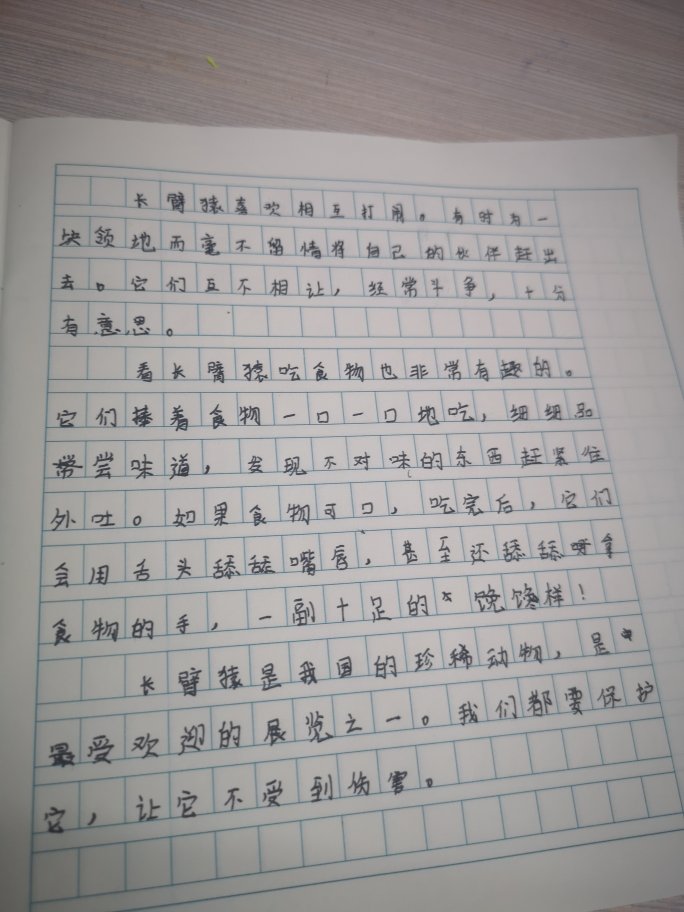 长臂猿喜欢相互打闹。有时为一
块领地而毫不留情将自己的伙伴赶出
去。它们互不相让，经常斗争，十分
有意思。
看长臂猿吃食物也非常有趣的。
它们捧着食物一口一口地吃，细细品
尝味道，发现不对味的东西赶紧往
外吐。如果食物可口，吃完后，它们
会用舌头舔舔嘴唇，甚至还舔舔拿
食物的手，一副十足的馋馋样！
长臂猿是我国的珍稀动物，是
最受欢迎的展览之一。我们都要保护
它，让它不受到伤害。